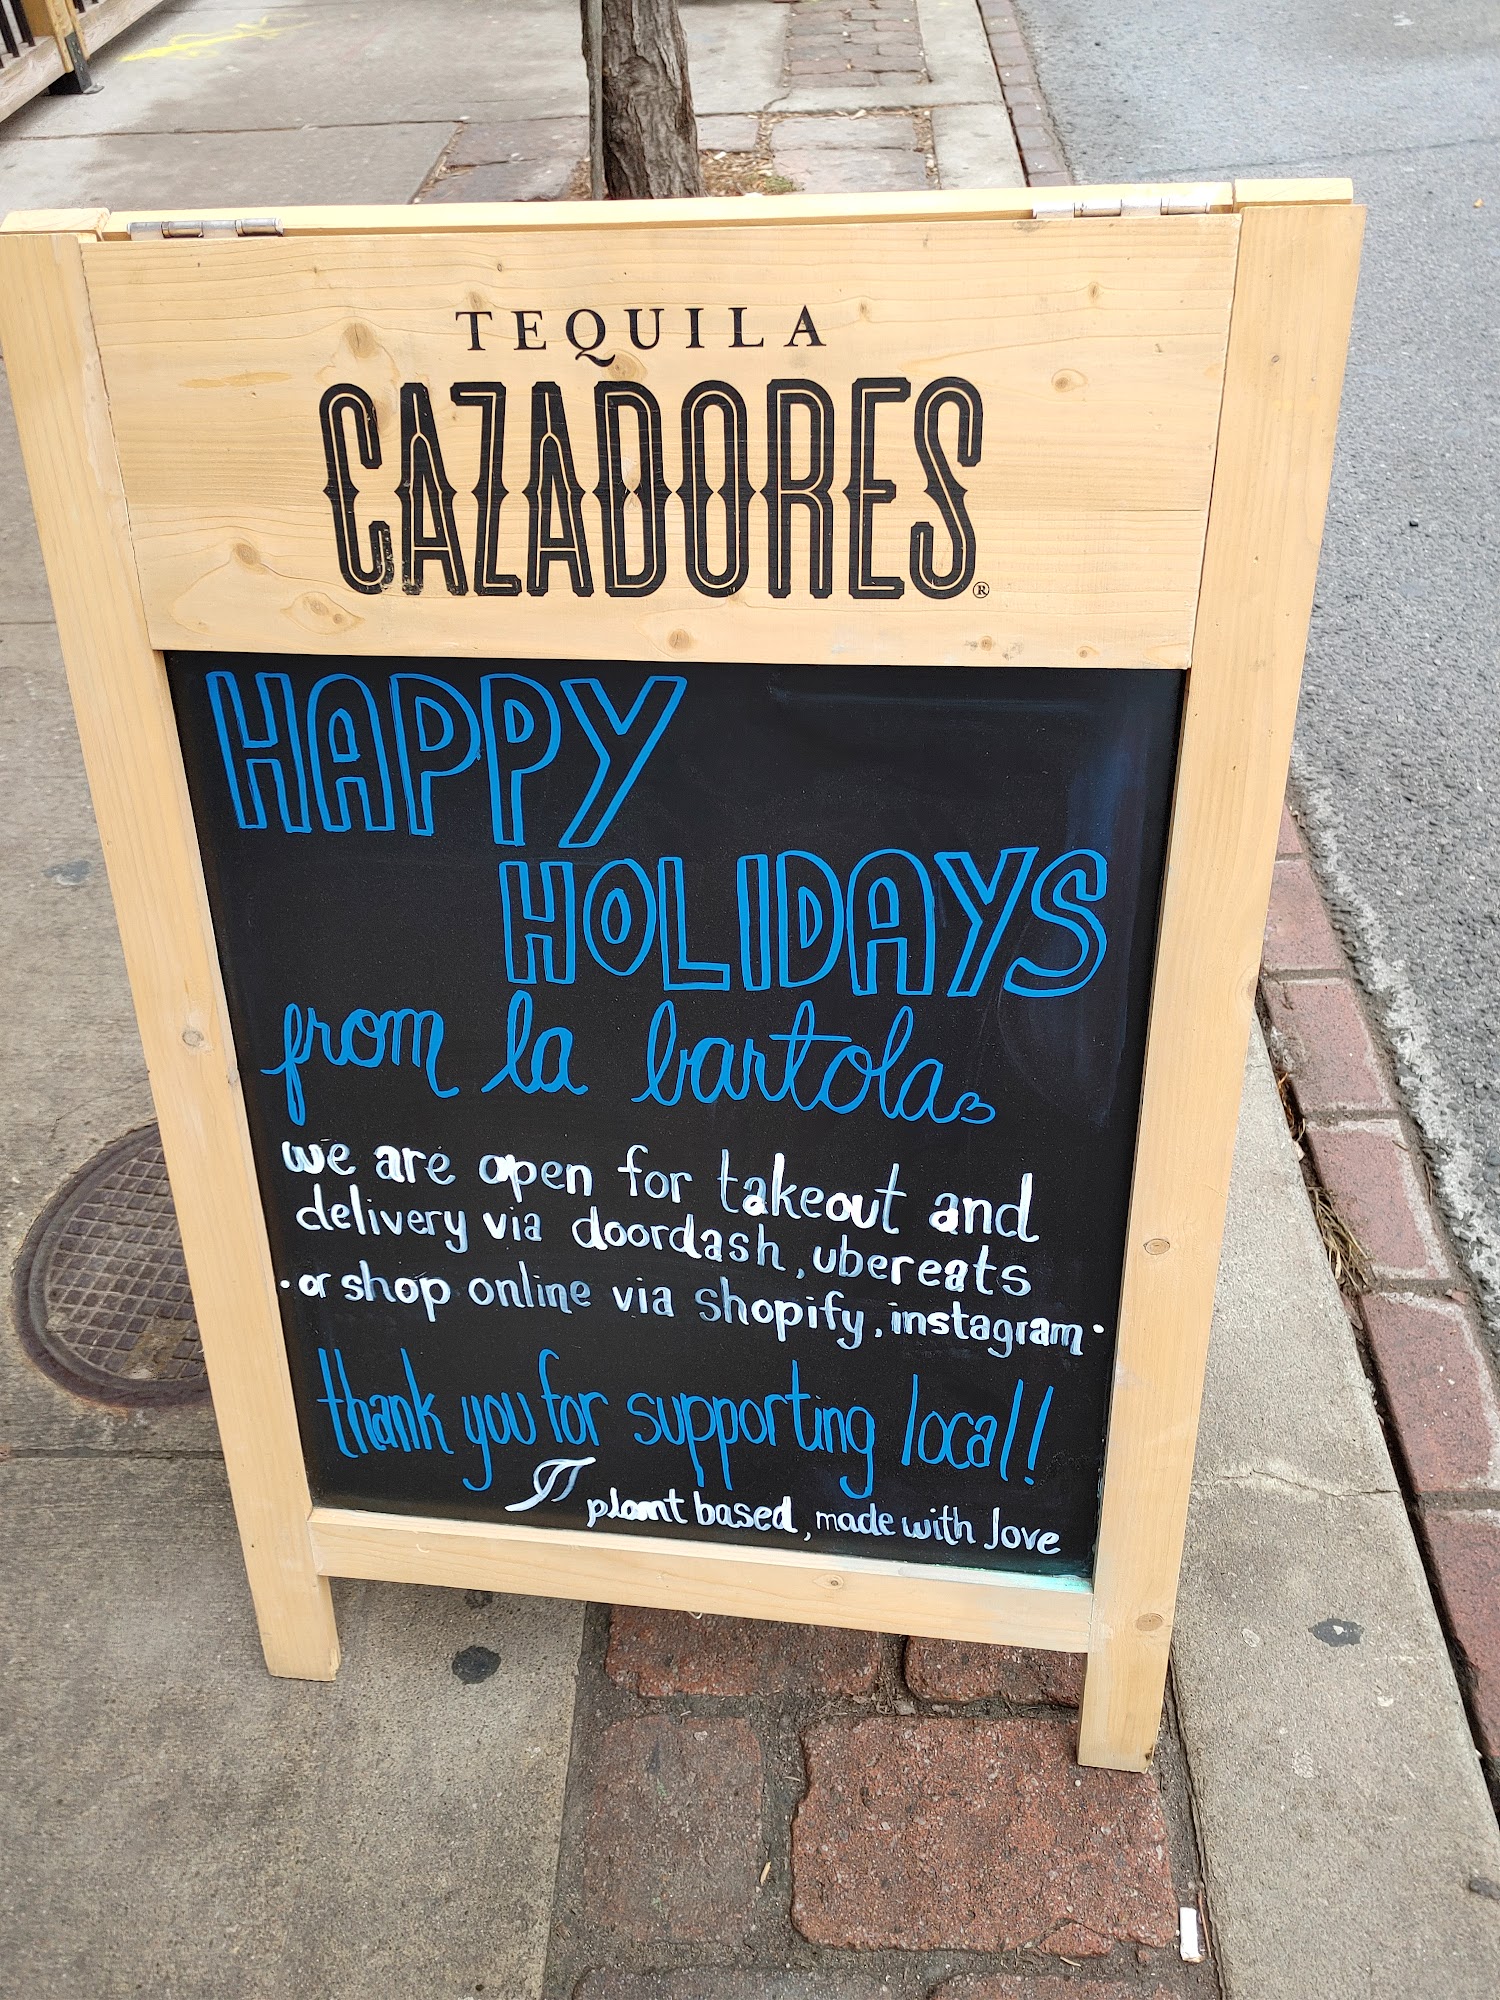 TEQUILA
CAZADORES®
HAPPY
HOLIDAYS
from la bartola
we are open for takeout and
delivery via doordash, ubereats
· or shop online via shopify, instagram ·
thank you for supporting local!
plant based, made with love